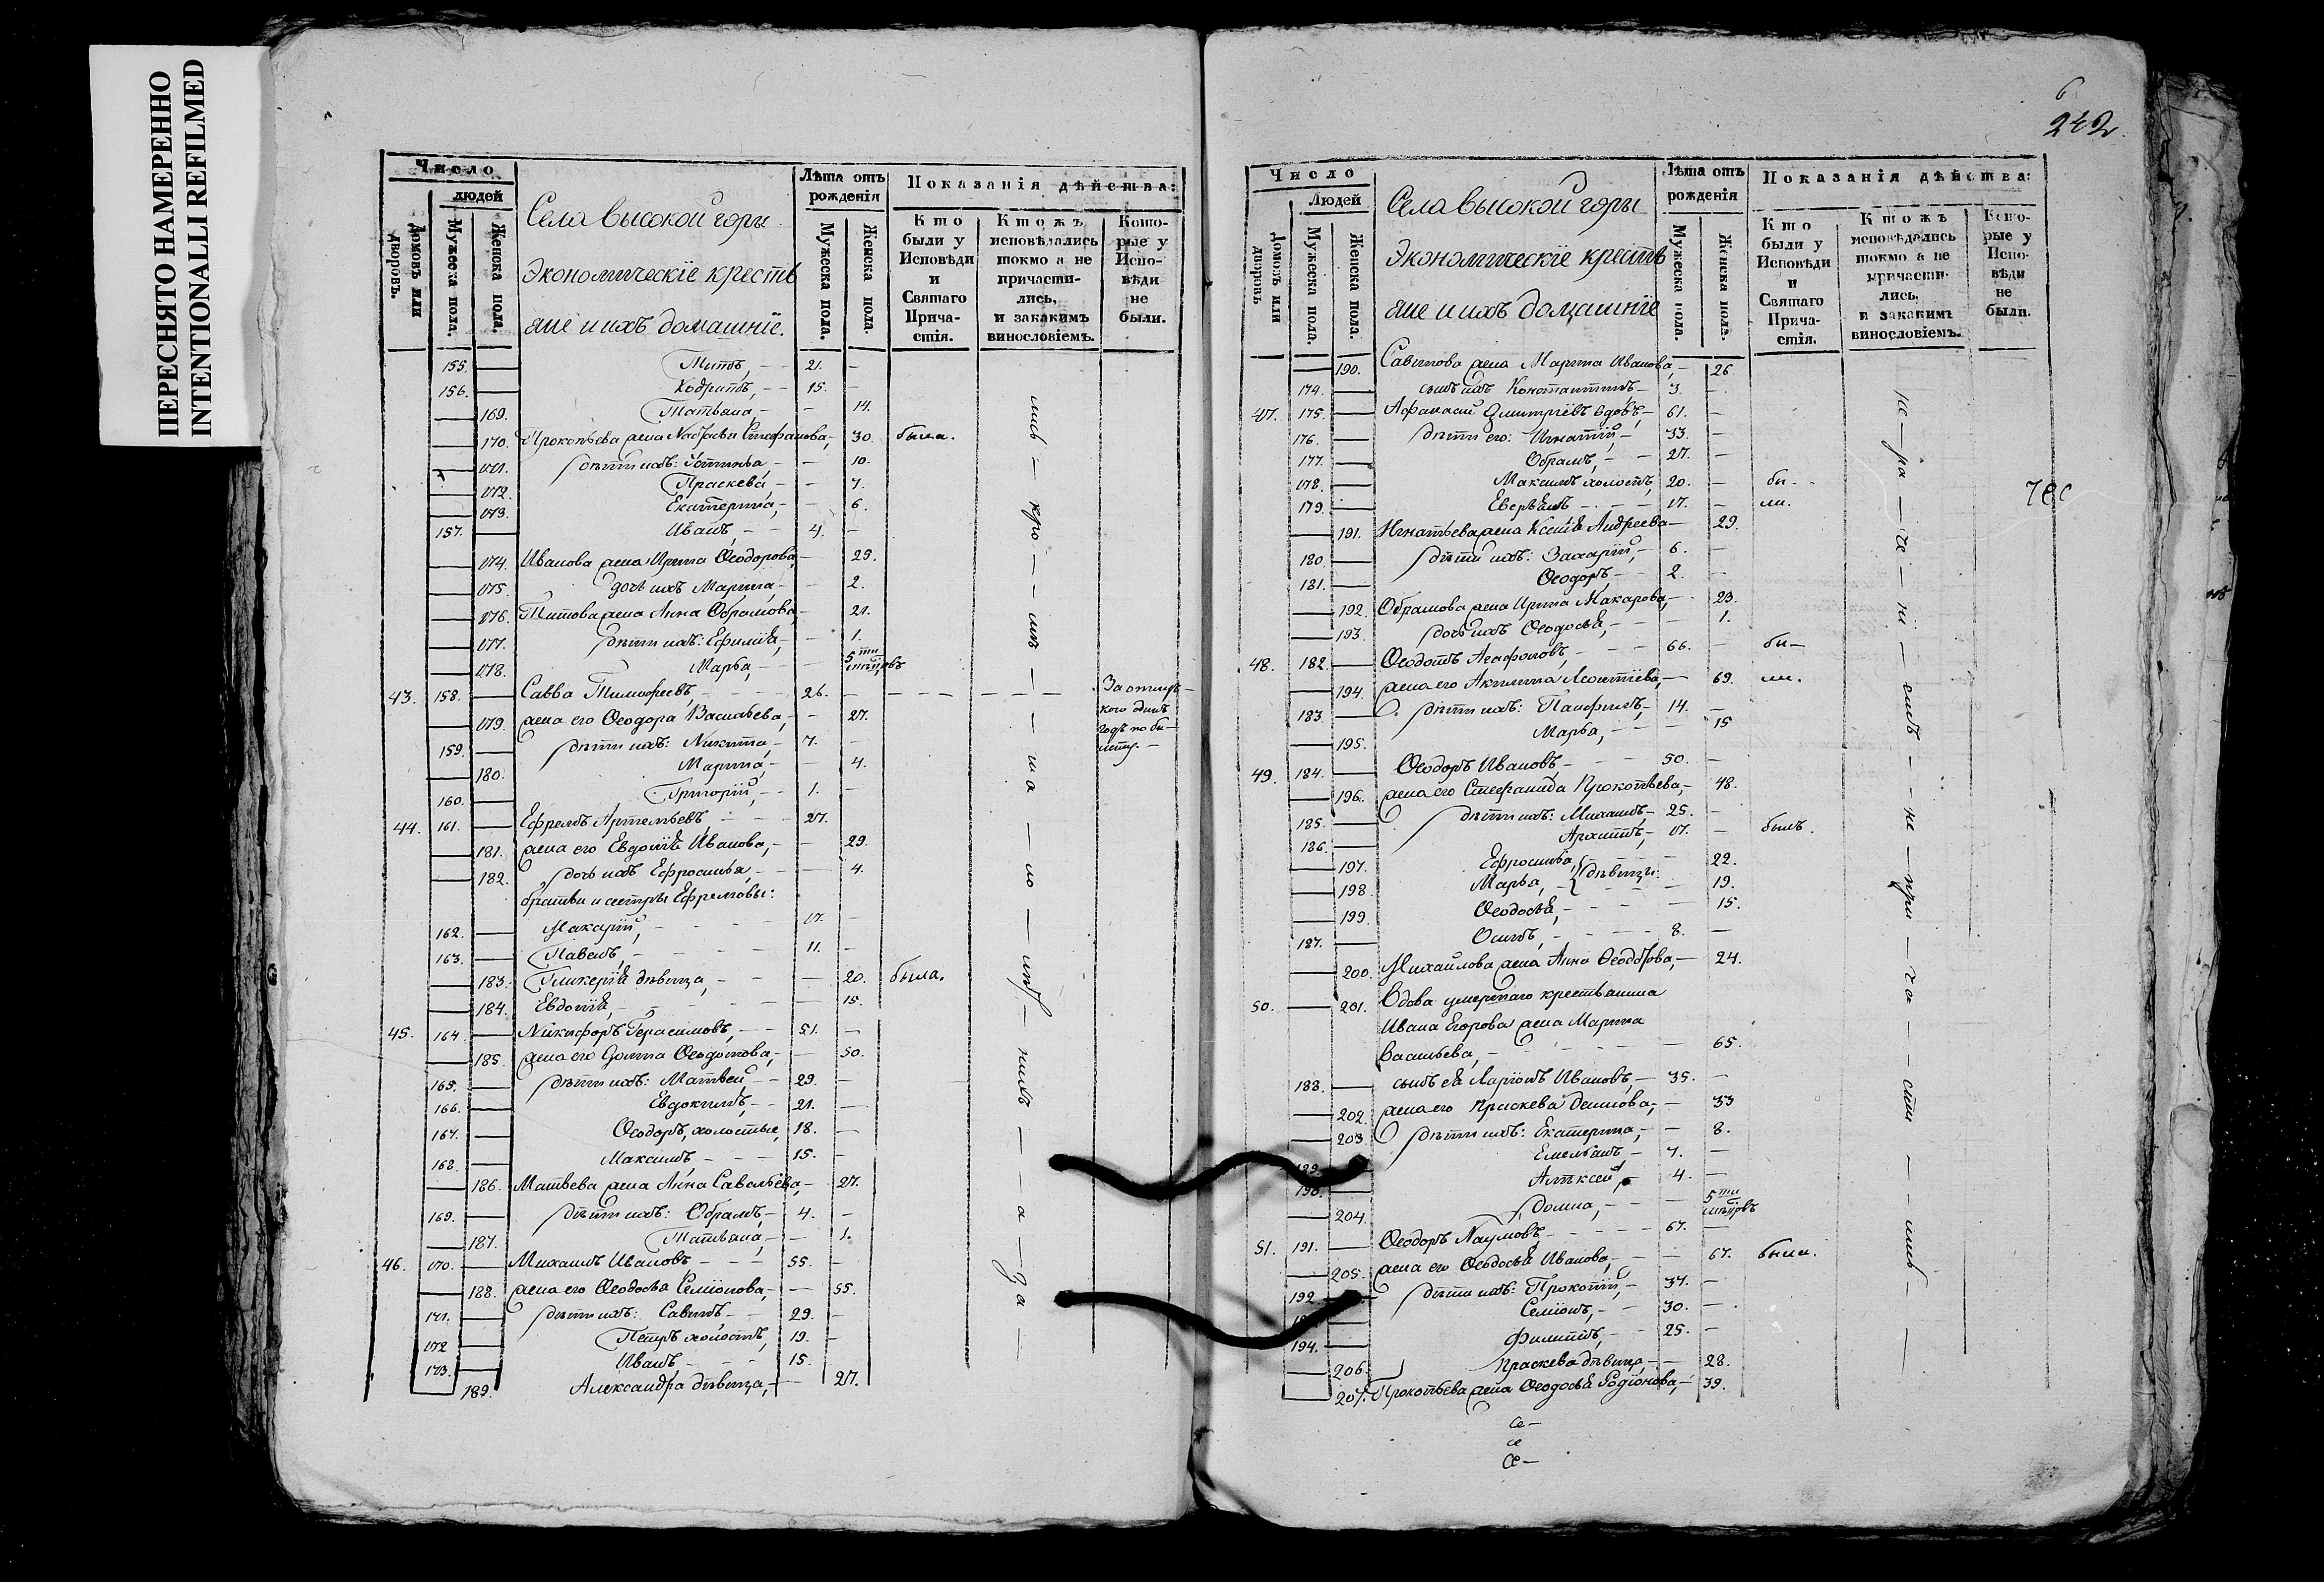 ПЕРЕСНЯТО НАМЕРЕННО
INTENTIONALLI REFILMED
Число
людей
Домовъ или дворовъ.
Мужеска пола.
Женска пола.
Села высокой горы
Экономическїе кресть
яне и ихъ домашнїе.
Лѣта отъ рожденія
Мужеска пола.
Женска пола.
Показанія дѣйства:
Кто были у Исповѣди и Святаго Причастія.
Ктожъ исповѣдались токмо а не причастились, и закакимъ винословіемъ.
Которые у Исповѣди не были.
155. — Титъ, — 21. —
156. — Кодратъ, — 15. —
— 169. Татьяна, — — 14.
— 170. Прокопьева жена Стефанова, — 30. была.
— 171. дѣти ихъ: Устинья, — — 10.
— 172. Праскева, — — 7.
— 173. Екатерина, — — 6.
157. — Иванъ, — 4. —
— 174. Иванова жена Ирина Ѳеодорова, — 23.
— 175. дочь ихъ Марина, — — 2.
— 176. Титова жена Анна Обрамова, — 21.
— 177. дѣти ихъ: Ефимїя, — — 1.
— 178. Марѳа, — 5ти
43. 158. — Савва Тимофеевъ, — 26. —
— 179. жена его Ѳеодора Васильева, — — 27.
159. — дѣти ихъ: Никита, — 7. —
— 180. Марина, — — 4.
160. — Григорїй, — 1. —
44. 161. — Ефремъ Артемьевъ — 27.
— 181. жена его Евдокїя Иванова, — — 29.
— 182. дочь ихъ Ефросинья, — — 4.
братья и сестры Ефремовы:
162. — Макарїй, — 17. —
163. — Павелъ, — 11. —
— 183. Гликерїя дѣвица, — — 20. была.
— 184. Евдокїя, — — 15.
45. 164. — Никифоръ Герасимовъ, — 51. —
— 185. жена его Домна Ѳеодотова, — — 50.
165. — дѣти ихъ: Матвей, — 29. —
166. — Евдокимъ, — 21. —
167. — Ѳеодоръ, холостые, 18. —
168. — Максимъ — 15. —
— 186. Матвева жена Анна Савельева, — 27.
169. — дѣти ихъ: Обрамъ, — 4. —
— 187. Татьяна, — — 1.
46. 170. — Михаилъ Ивановъ, — 55. —
— 188. жена его Ѳеодосья Семїонова, — — 55.
171. — дѣти ихъ: Савинъ — 29. —
172 — Петръ холостъ, 19. —
173. — Иванъ — 15.
— 189. Александра дѣвица, — 27.
6
242
Число
Людей
Домовъ или дворовъ
Мужеска пола.
Женска пола.
Села высокой горы
Экономическїе кресть
яне и ихъ домашнїе
Лѣта отъ рожденія
Мужеска пола.
Женска пола.
Показанія дѣйства:
Кто были у Исповѣди и Святаго Причастія.
Ктожъ исповѣдались токмо а не причастились, и закакимъ винословіемъ.
Которые у Исповѣди не были.
— 190. Савинова жена Марина Иванова, — 26.
174. — сынъ ихъ Константинъ — 3. —
47. 175. — Афанасий Димитрїевъ вдовъ, — 61. —
176. — дѣти его: Игнатїй, — 33. —
177. — Обрамъ, — 27. —
178. — Максимъ холостъ, 20. — бы-
179. — 17. — ли.
— 191. Игнатьева жена Ксенїя Андреева — 29.
180. — дѣти ихъ: Захарїй, — 6. —
181. — Ѳеодоръ — 2. —
— 192. Обрамова жена Ирина Макарова, — 23.
— 193. дочь ихъ Ѳеодосья, — — 1.
48. 182. — Ѳеодотъ Агафоновъ, — 66. — бы—
— 194. жена его Акилина Леонтїева, — 69. ли.
183. — дѣти ихъ: Панфилъ, — 14. —
— 195. Марѳа, — — 15
49. 184. — Ѳеодоръ Ивановъ, — 50. —
— 196. жена его Стефанида Прокопьева, — 48.
185. — дѣти ихъ: Михаилъ, — 25. —
186. — Архипъ, — 17. — былъ.
— 197. Ефросинья, — 22.
— 198. Марья, — } дѣвицы. — 19.
— 199. Ѳеодосья, — — 15.
187. — Осипъ, — 8. —
— 200. Михайлова жена Анна Ѳеодорова, — 24.
50. — 201. Вдова умершаго крестьянина
Ивана Егорова жена Марина
Васильева, — — 65.
188. — сынъ ея Ларїонъ Ивановъ, — 35. —
— 202. жена его Праскева Денисова, — — 33
— 203. дѣти ихъ: Екатерина, — — 8.
189. Емельянъ — 7. —
190. — Алѣксей — 4. —
— 204. Домна, — — 5ти
51. 191. — Ѳеодоръ Наумовъ, — 67. —
— 205. жена его Ѳеодосья Иванова, — — 67. была.
192 — дѣти ихъ: Прокопїй, — 37. —
— Семїонъ, — 30. —
194. — Филиппъ, — 25. —
— 206 Праскева дѣвица, — 28.
— 207. Прокопьева жена Ѳеодосья Родїонова, — 39.